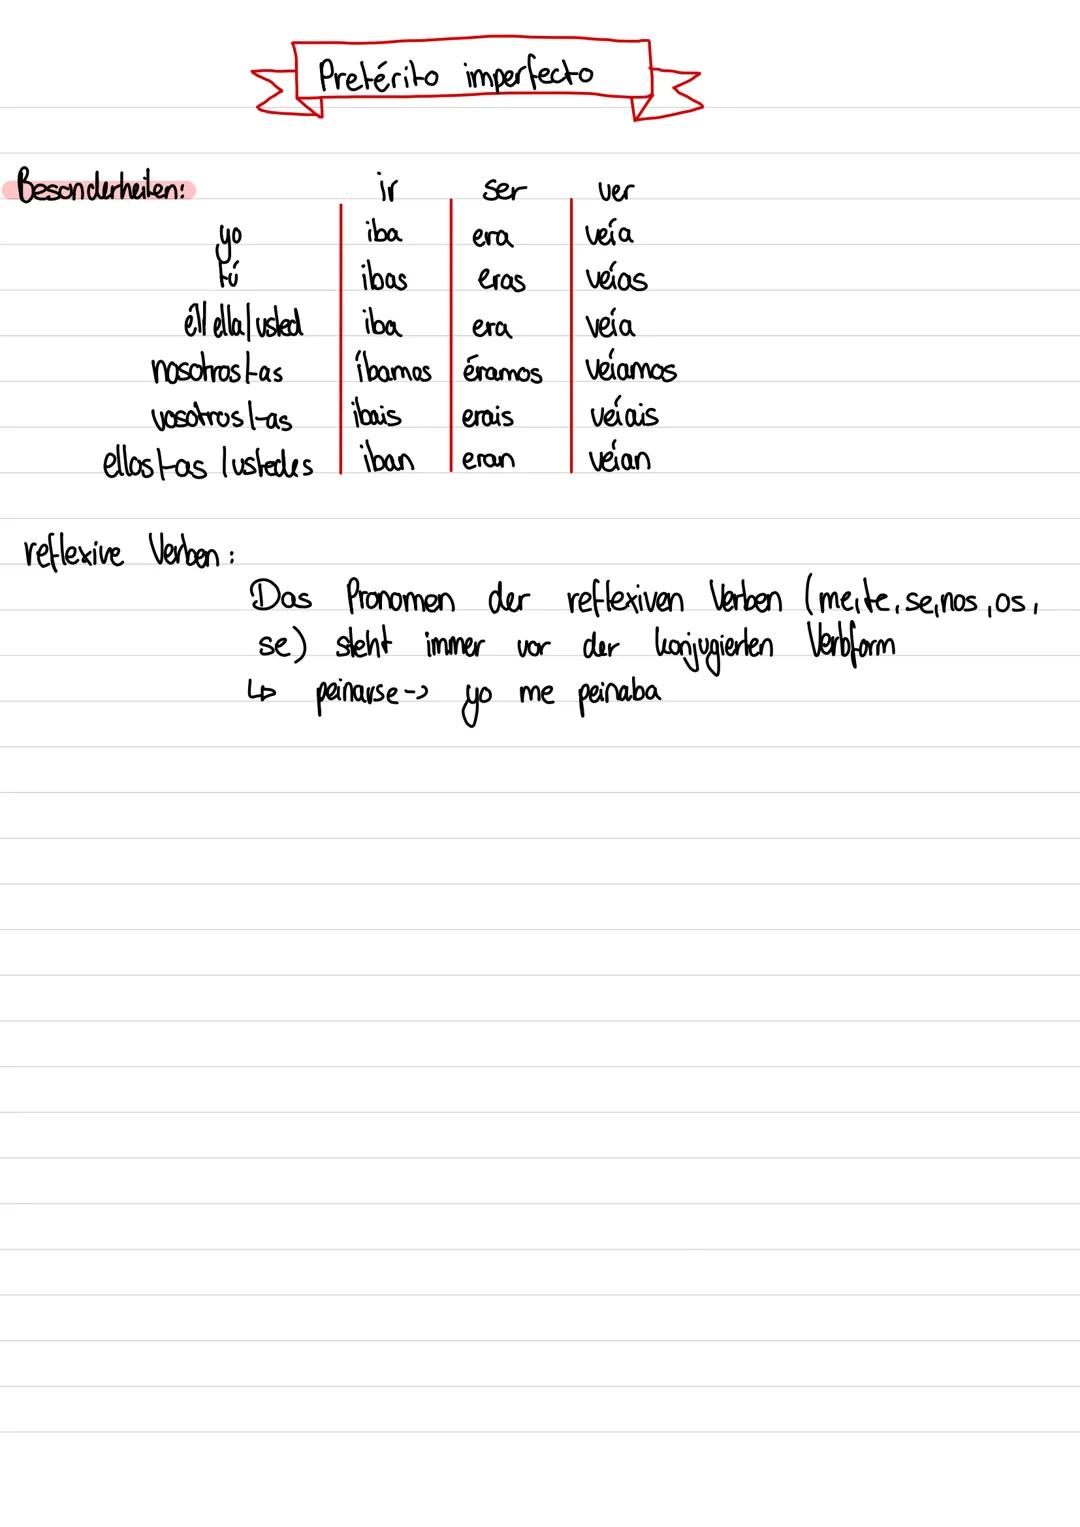 Pretérito imperfecto
Besonderheiten: ir ser ver
yo iba era veía
tú ibas eras veías
él/ ella/ usted iba era veía
nosotros/-as íbamos éramos veíamos
vosotros/-as ibais erais veíais
ellos/-as /ustedes iban eran veían
reflexive Verben:
Das Pronomen der reflexiven Verben (me, te, se, nos, os,
se) steht immer vor der konjugierten Verbform
↳ peinarse -> yo me peinaba